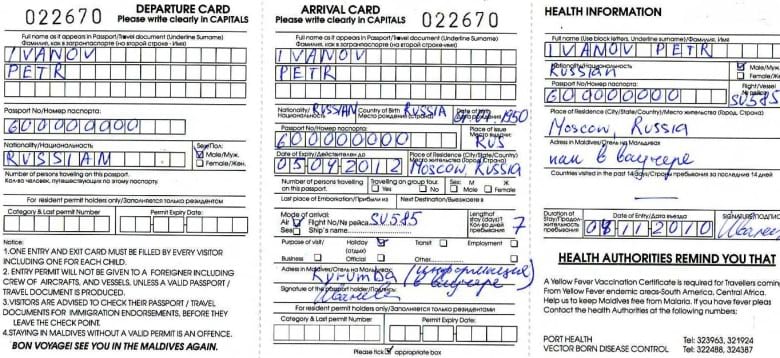 DEPARTURE CARD
Please write clearly in CAPITALS
022670
Full name as it appears in Passport/Travel document (Underline Surname)
Фамилия, как в загранпаспорте (на второй строке - Имя)
IVANOV
PETR
Passport No/Номер паспорта:
600000000
Nationality/Национальность
RUSSIAN
Sex/Пол:
Male/Муж.
Female/Жен.
Number of persons travelling on this passport.
Кол-во человек, путешествующих по этому паспорту.
For resident permit holders only/Заполняется только резидентом
Category & Last permit Number
Permit Expiry Date:
Notice:
1.ONE ENTRY AND EXIT CARD MUST BE FILLED BY EVERY VISITOR
INCLUDING ONE FOR EACH CHILD.
2. ENTRY PERMIT WILL NOT BE GIVEN TO A FOREIGNER INCLUDING
CREW OF AIRCRAFTS, AND VESSELS, UNLESS A VALID PASSPORT /
TRAVEL DOCUMENT IS PRODUCED.
3. VISITORS ARE ADVISED TO CHECK THEIR PASSPORT / TRAVEL
DOCUMENTS FOR IMMIGRATION ENDORSEMENTS, BEFORE THEY
LEAVE THE CHECK POINT.
4.STAYING IN MALDIVES WITHOUT A VALID PERMIT IS AN OFFENCE.
BON VOYAGE! SEE YOU IN THE MALDIVES AGAIN.
ARRIVAL CARD
Please write clearly in CAPITALS
022670
Full name as it appears in Passport/Travel document (Underline Surname)
Фамилия, как в загранпаспорте (на второй строке-имя)
IVANOV
PETR
Nationality/ Национальность RUSSIAN Country of Birth Место рождения (Страна) RUSSIA 01.01.1950
Passport No/Номер паспорта:
Place of issue
600000000 RUS
Date of Expiry/Действителен до
Place of Residence (City/State/Country)
05042012 Moscow, Russia
Number of persons travelling on this passport.
Travelling on group tour.
Yes No
Sex: М Male Ж Female
Last place of Embarkation/Прибыли из
Next Destination/Выезжаете в
Mode of arrival:
Air Flight No/№ рейса SU585
Sea Ship's name
Length of stay (days)?
Кол-во дней пребывания
7
Purpose of visit/ Holiday (отдых) Transit Employment
Business Official Other
Adress in Maldives/Отель на Мальдивах:
Kurumba (информация в ваучере
Signature of the passport holder/Подпись:
For resident permit holders only/Заполняется только резидентом
Category & Last permit Number
Permit Expiry Date:
Please tick appropriate box
HEALTH INFORMATION
Full name (Use block letters, Underline surname)/Фамилия, Имя
IVANOV PETR
Nationality/Национальность
Russian
Male/Муж.
Female/Жен.
Passport No/Номер паспорта
Flight/Vessel
№ рейса
600000000 SU585
Place of Residence (City/State/Country)/Место жительства (Город, Страна)
Moscow, Russia
Adress in Maldives/Отель на Мальдивах
как в ваучере
Countries visited in the past 14 days/Страны пребывания за последние 14 дней
Duration of Stay/Продолжительность пребывания
Date of Entry/Дата въезда
08112010
HEALTH AUTHORITIES REMIND YOU THAT
A Yellow Fever Vaccination Certificate is required for Travellers coming
From Yellow Fever endemic areas-South America, Central Africa.
Help us to keep Maldives free from Malaria. If you have fever pleas
Contact the Health Authorities at the following numbers:
PORT HEALTH Tel: 323963, 321924
VECTOR BORN DISEASE CONTROL Tel: 322488, 324387